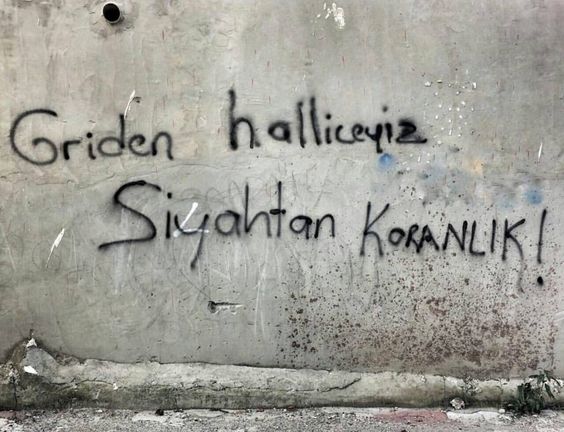 Griden halliceyiz
Siyahtan KORANLIK!